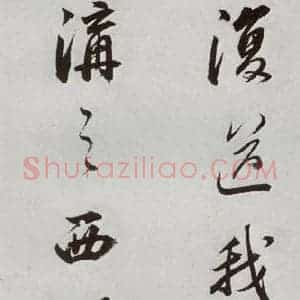 復道我
溝之西
Shufaziliao.COM